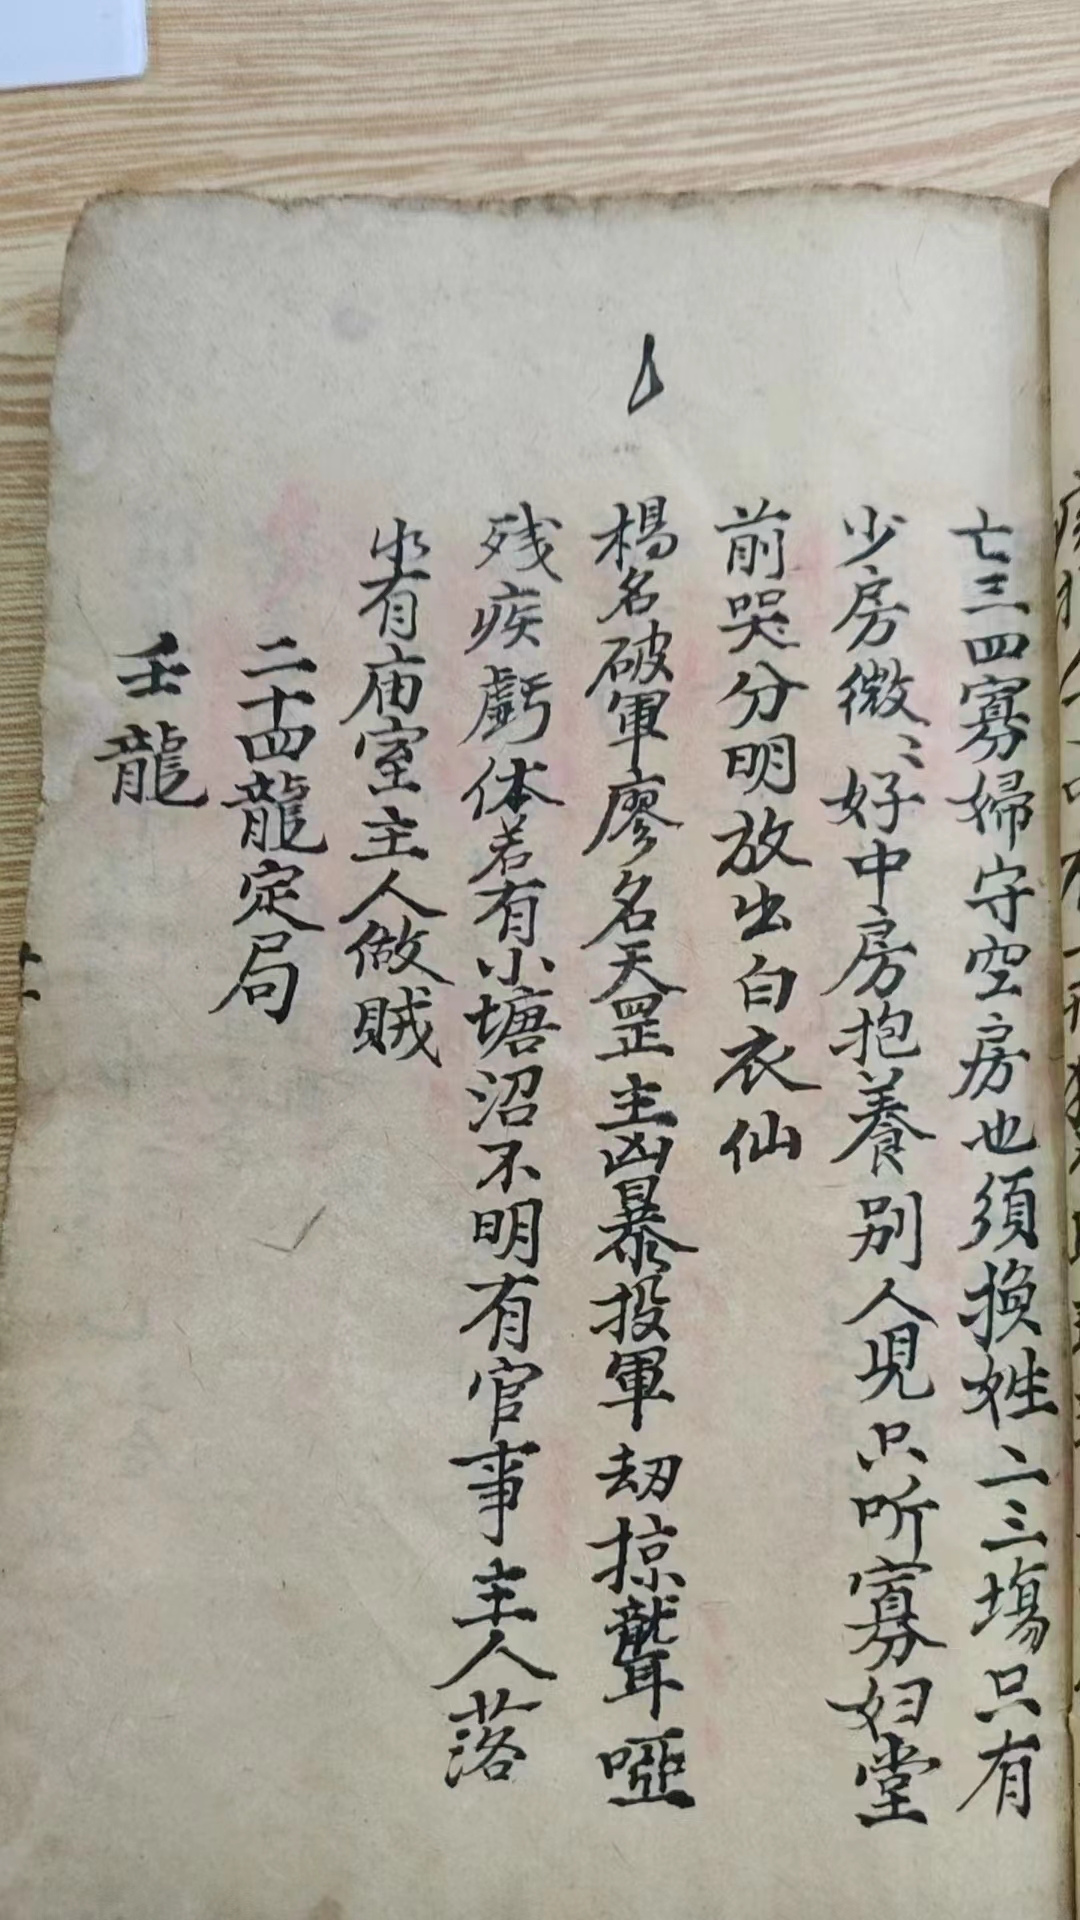 亡三四寡婦守空房也須換姓二三塲只有
少房微〻好中房抱養别人児只听寡妇堂
前哭分明放出白衣仙
楊名破軍廖名天罡主凶暴投軍劫掠聾啞
残疾虧体若有小塘沼不明有官事主人落
有庙室主人做賊
二十四龍定局
壬龍